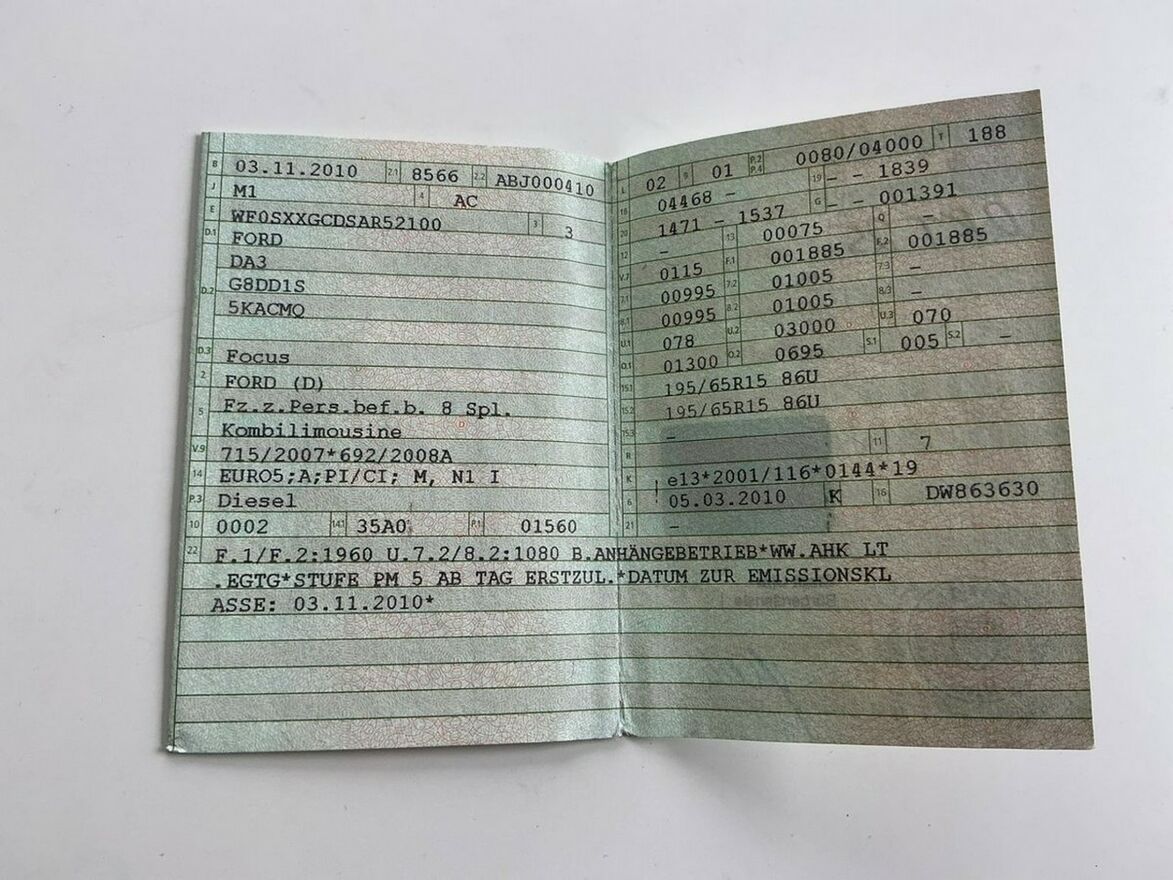 B 03.11.2010 2.1 8566 2.2 ABJ000410
J M1 4 AC
E WF0SXXGCDSAR52100 3 3
D.1 FORD
DA3
D.2 G8DD1S
5KACMQ
D.3 Focus
2 FORD (D)
5 Fz.z.Pers.bef.b. 8 Spl.
Kombilimousine
V.9 715/2007*692/2008A
14 EURO5;A;PI/CI; M, N1 I
P.3 Diesel
10 0002 14.1 35A0 P.1 01560
L 02 9 01 P.2 P.4 0080/04000 T 188
18 04468 – 19 – – 1839
20 1471 – 1537 G – – 001391
12 – 13 00075 Q –
V.7 0115 F.1 001885 F.2 001885
7.1 00995 7.2 01005 7.3 –
8.1 00995 8.2 01005 8.3 –
U.1 078 U.2 03000 U.3 070
O.1 01300 O.2 0695 S.1 005 S.2 –
15.1 195/65R15 86U
15.2 195/65R15 86U
15.3 –
R 11 7
K e13*2001/116*0144*19
6 05.03.2010 K 16 DW863630
21 –
22 F.1/F.2:1960 U.7.2/8.2:1080 B.ANHÄNGEBETRIEB*WW.AHK LT
.EGTG*STUFE PM 5 AB TAG ERSTZUL.*DATUM ZUR EMISSIONSKL
ASSE: 03.11.2010*